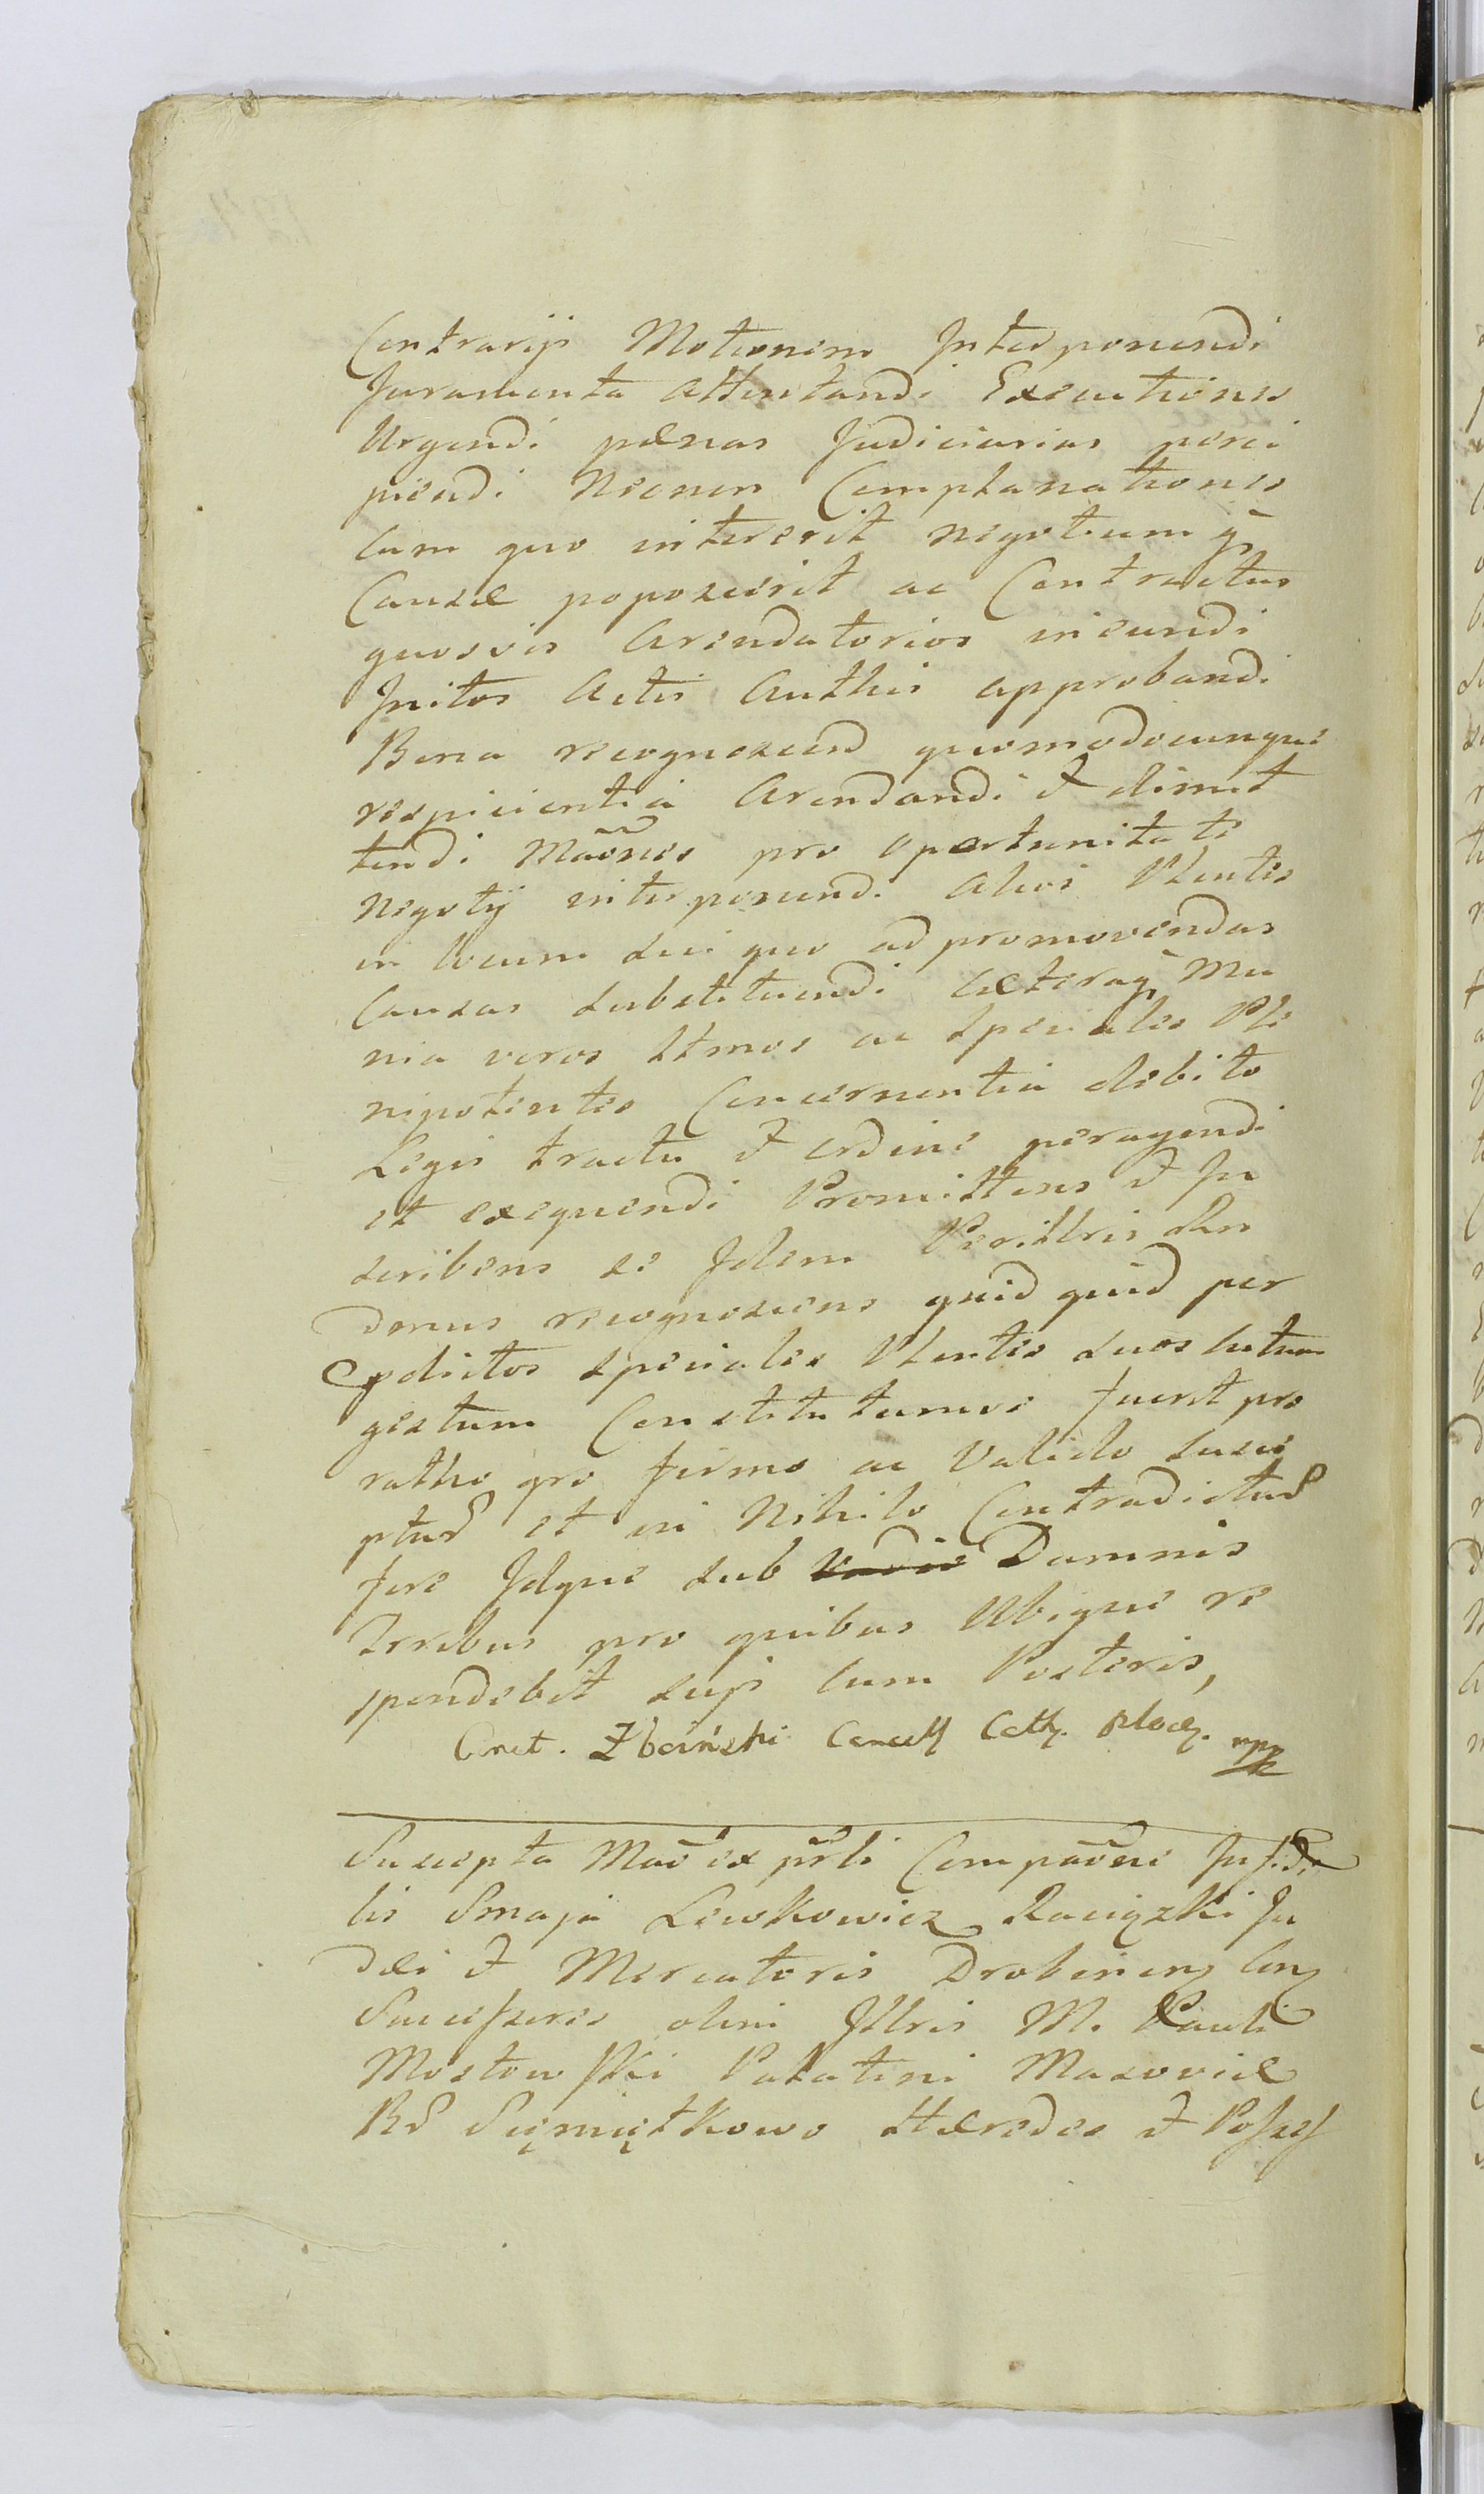 Contrarijs Motionem Interponendi
Juramenta Attentandi Executiones
Urgendi pænas Judiciarias perci
piendi Necnon Complanationes
Cum quo intererit negotiumq
Causæ poposcerit ac Contractus
quosvis Arendatorios ineundi
Initos Actis Authis approbandi
Bona recognoscend quomodocunque
respicientia Arendandi et dimit
tendi Mãones pro oportunitate
Negotij interponendi Alios Plentes
in locum sui quo ad promovendas
Causas substituendi cæteraq Mu
nia veros Ltmos ac Speciales Ple
nipotentes Concernentia debito
Legis tractu et ordine peragendi
et exequendi Promittens et In
scribens se Idem Perillris
Donus recognoscens quid quid per
pdictos Speciales Plentes suos
gestum Constitutumve fuerit pro
ratho gro firmo ac Valido susce
pturũ et in Nihilo Contradicturũ
fore Idque sub Vadio Damnis
Trribus pro quibus Ubique re
spondebit sup cum Posteris,
Ant. Zboiński Cancell Cath. Płocq. mpp
Suscepta Mão ex prli Compaõne Infide
lis Smaja Lewkowicz Raciązki Ju
dæi et Mercatoris Drobinen Con
Successores olim Illris M. Pauli
Mostowski Palatini Masoviæ
Bõ Sięmiątkowo Hæredes et Posses